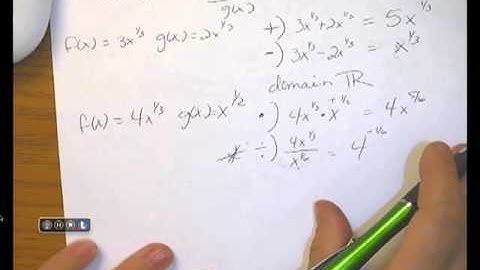 g(x)
f(x) = 3x^{1/3} g(x) = 2x^{1/3} +) 3x^{1/3} + 2x^{1/3} = 5x^{1/3}
-) 3x^{1/3} - 2x^{1/3} = x^{1/3}
domain ℝ
f(x) = 4x^{1/3} g(x) = x^{1/2} •) 4x^{1/3} • x^{1/2} = 4x^{5/6}
÷) 4x^{1/3} / x^{1/2} = 4^{-1/6}